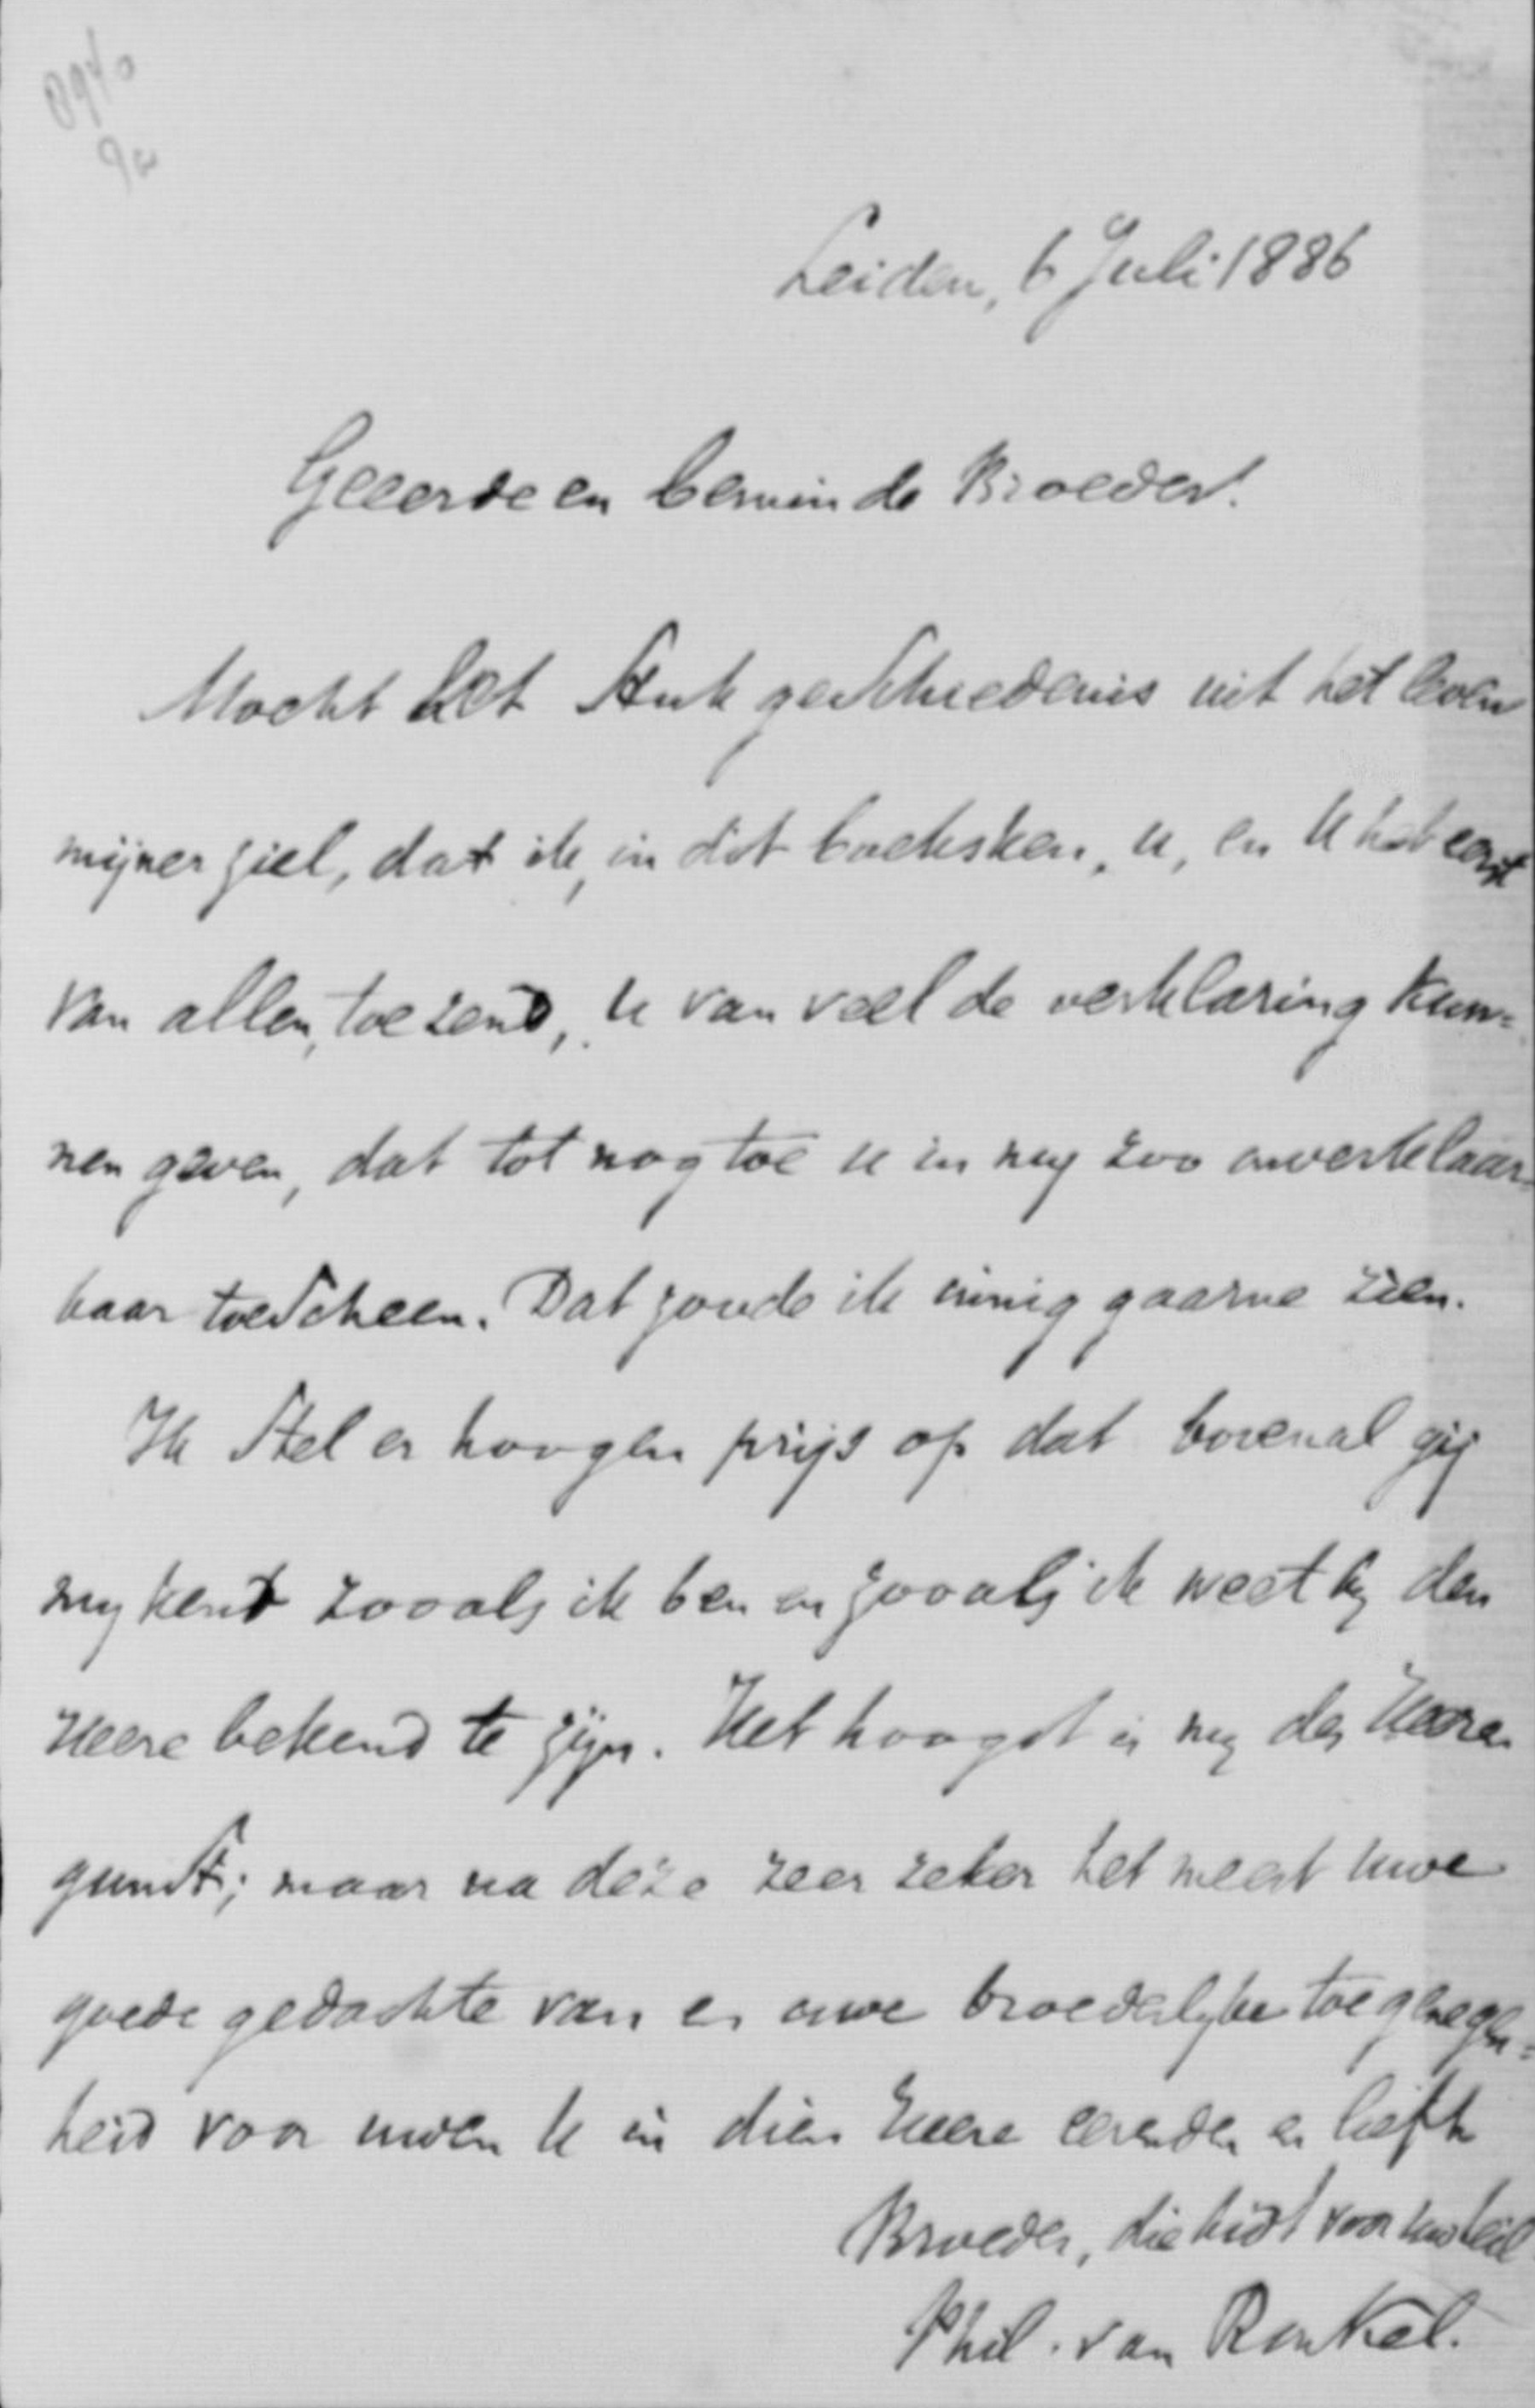 Leiden, 6 Juli 1886
Geeerde en beminde Broeder!
Mocht het stuk geschiedenis uit het leven
mijner ziel, dat ik, in dit boeksken, u, en U het eerst
van allen, toezend, U van veel de verklaring kun=
nen geven, dat tot nog toe u in my zoo onverklaar=
baar toescheen. Dat zoude ik innig gaarne zien.
Ik stel er hoogen prijs op dat bovenal gij
my kent zooals ik ben en zooals ik weet by den
Heere bekend te zijn. Het hoogst is my des Heeren
gunst; maar na deze zeer zeker het meest uwe
goede gedachte van en uwe broederlyke toegenegen=
heid voor uwen U in dien Heere eerenden en liefh
Broeder, die bidt voor uw heil
Phil. van Ronkel.